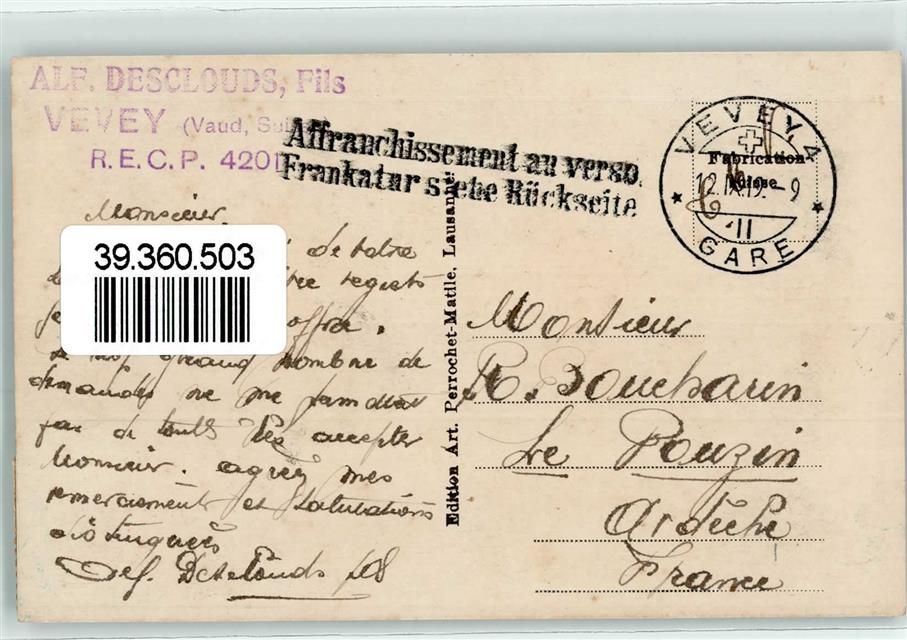 ALF. DESCLOUDS, Fils
VEVEY (Vaud,
R.E.C.P. 4201
Affranchissement au verso.
Frankatur siehe Rückseite
VEVEY 1
Fabrication
Suisse
12.IX.19. - 9
II
GARE
Monsieur.
de votre
regrets
offre.
grand nombre de
demandes ne me
pas de toutes les accepter
Monsieur. agréez mes
remerciements et salutations
distinguées
Alf. Desclouds fils
39.360.503
Edition Art. Perrochet-Matile, Lausanne
Monsieur
R. Boucharin
Le Pouzin
Ardèche
France